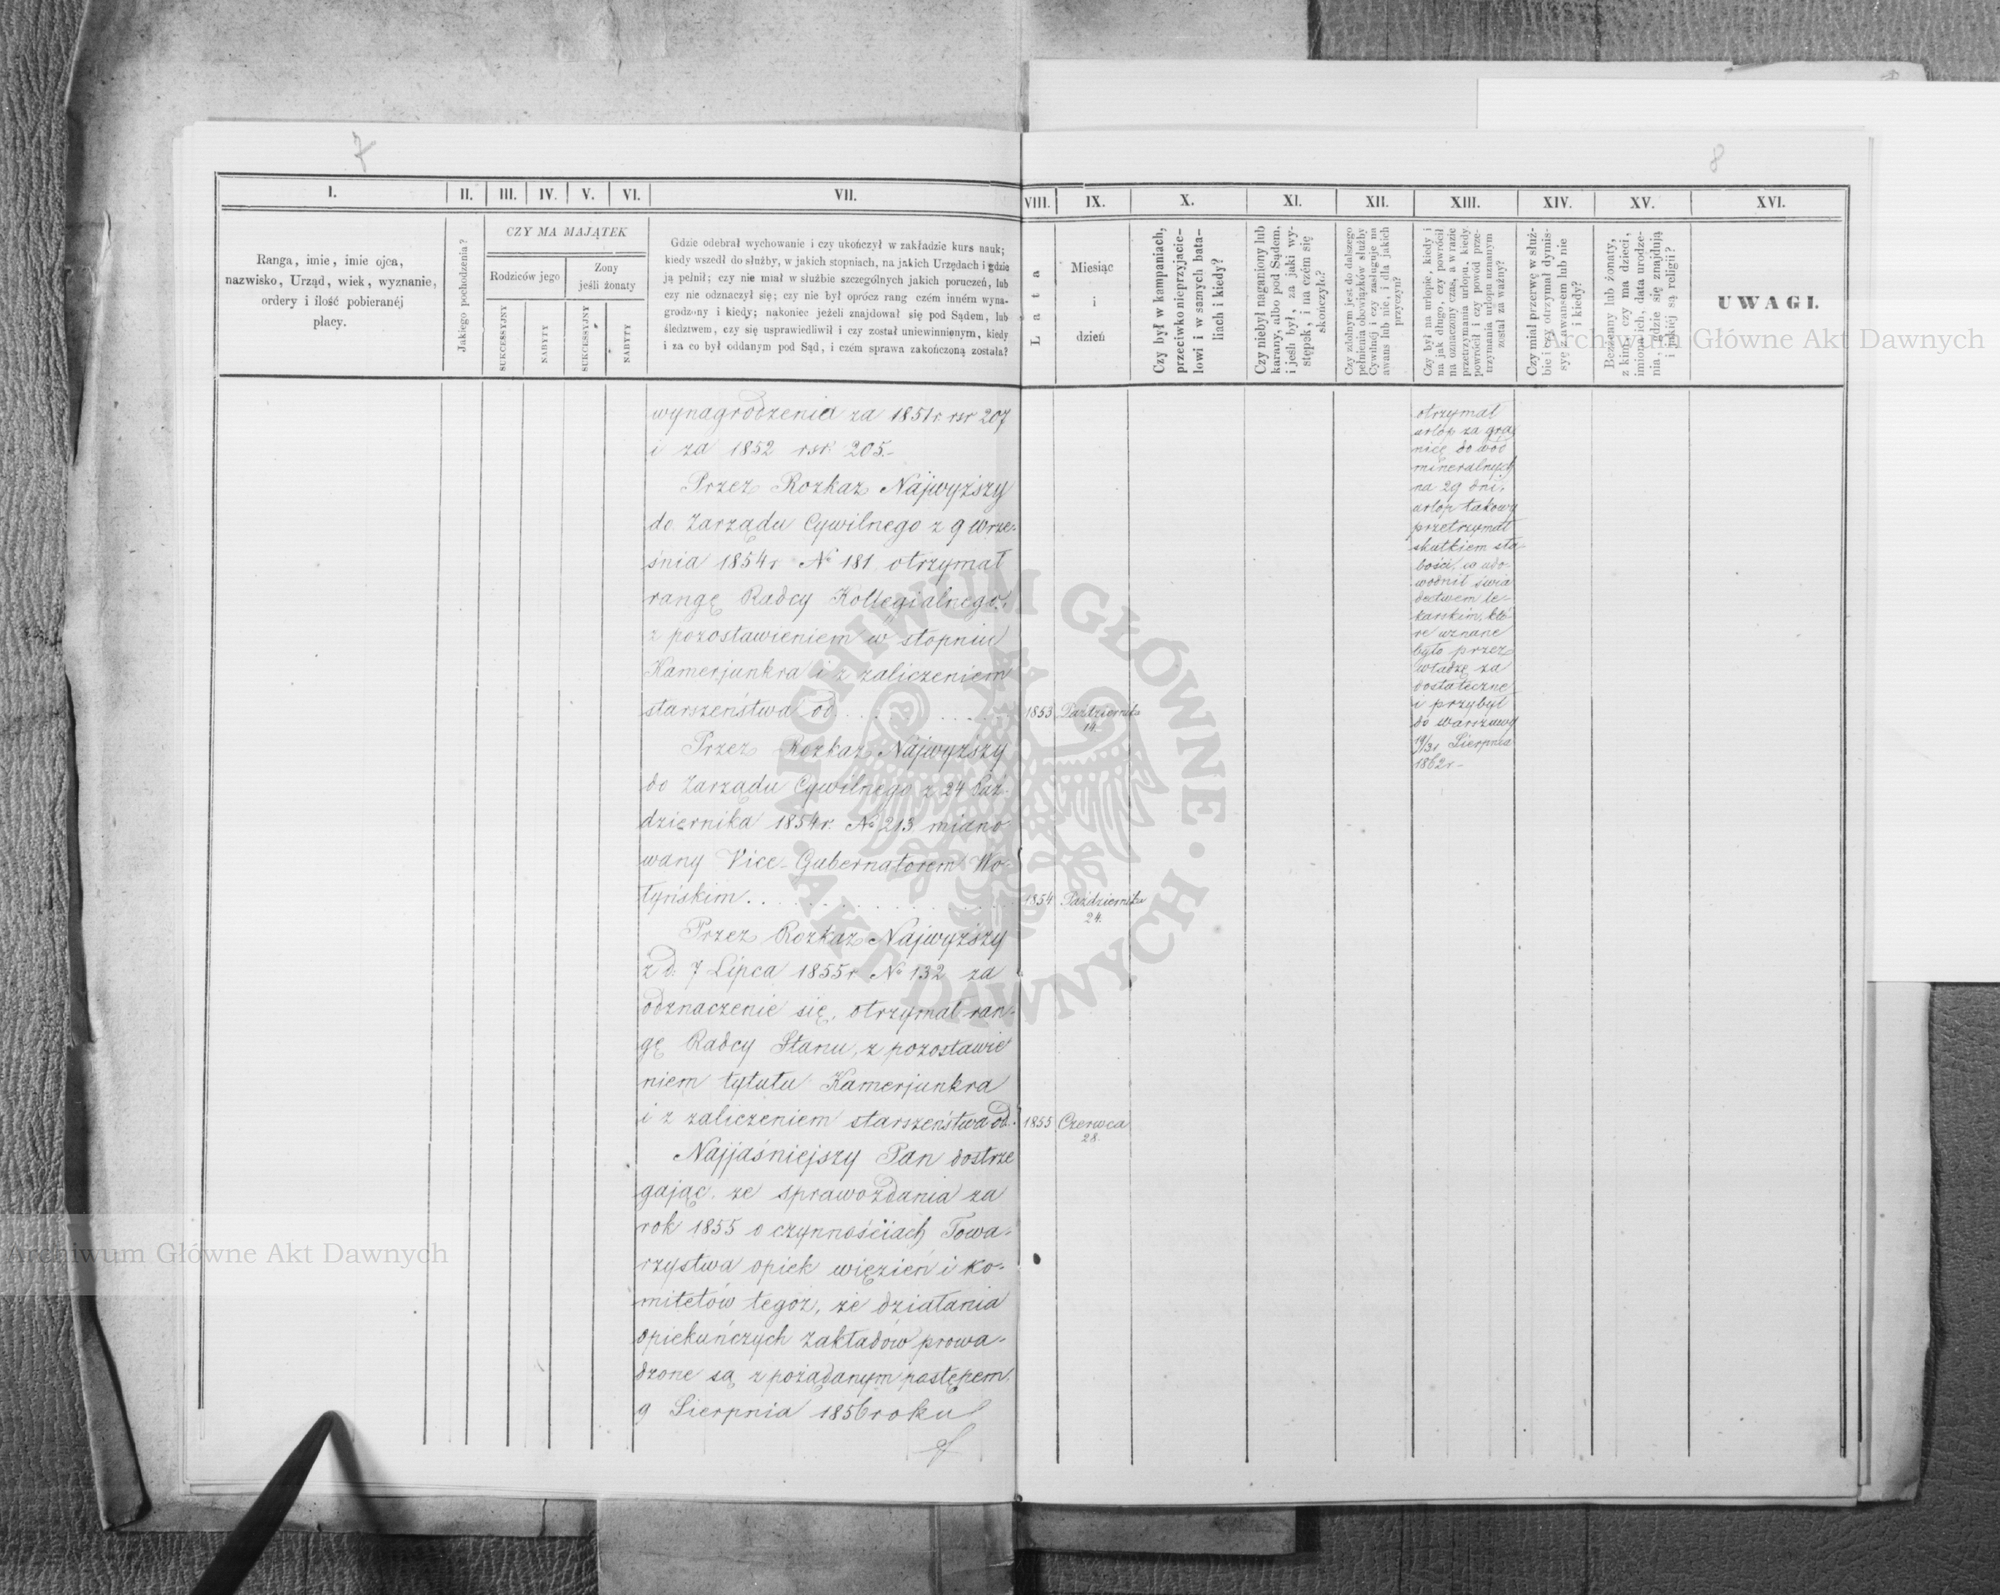 7
8
I.
II.
III.
IV.
V.
VI.
VII.
VIII.
IX.
X.
XI.
XII.
XIII.
XIV.
XV.
XVI.
Ranga, imie, imie ojca,
nazwisko, Urząd, wiek, wyznanie,
ordery i ilość pobieranéj
płacy.
Jakiego pochodzenia?
CZY MA MAJĄTEK
Rodziców jego
Żony
jeśli żonaty
SUKCESSYJNY
NABYTY
SUKCESSYJNY
NABYTY
Gdzie odebrał wychowanie i czy ukończył w zakładzie kurs nauk;
kiedy wszedł do służby, w jakich stopniach, na jakich Urzędach i gdzie
ją pełnił; czy nie miał w służbie szczególnych jakich poruczeń, lub
czy nie odznaczył się; czy nie był oprócz rang czém inném wyna-
grodzony i kiedy; nakoniec jeżeli znajdował się pod Sądem, lub
śledztwem, czy się usprawiedliwił i czy został uniewinnionym, kiedy
i za co był oddanym pod Sąd, i czém sprawa zakończoną została?
Lata
Miesiąc
i
dzień
Czy był w kampaniach,
przeciwko nieprzyjacie-
lowi i w samych bata-
liach i kiedy?
Czy niebył naganiony lub
karany, albo pod Sądem,
i jeśli był, za jaki wy-
stępek, i na czém się
skończyło?
Czy zdolnym jest do dalszego
pełnienia obowiązków służby
Cywilnéj i czy zasługuje na
awans lub nie, i dla jakich
przyczyn?
Czy był na urlopie, kiedy i
na jak długo, czy powrócił
na oznaczony czas, a w razie
przetrzymania urlopu, kiedy
powrócił i czy powód prze-
trzymania urlopu uznanym
został za ważny?
Czy miał przerwę w służ-
bie i czy otrzymał dymis-
syę z awansem lub nie
i kiedy?
Bezżenny lub żonaty,
z kim, czy ma dzieci,
imiona ich, data urodze-
nia, gdzie się znajdują
i jakiéj są religii?
UWAGI.
wynagrodzenia za 1851r. rsr 207
i za 1852 rsr. 205.-
Przez Rozkaz Najwyższy
do Zarządu Cywilnego z 9 Wrze-
śnia 1854r. № 181 otrzymał
rangę Radcy Kollegialnego,
z pozostawieniem w stopniu
Kamerjunkra i z zaliczeniem
starszeństwa od . . . . . . .
1853
Października
14.-
Przez Rozkaz Najwyższy
do Zarządu Cywilnego z 24 Paź-
dziernika 1854r. № 213 miano
wany Vice-Gubernatorem Wo-
łyńskim . . . . . . . . . . .
1854
Października
24.
Przez Rozkaz Najwyższy
z d. 7 Lipca 1855r № 132 za
odznaczenie się, otrzymał ran-
gę Radcy Stanu, z pozostawie
niem tytułu Kamerjunkra
i z zaliczeniem starszeństwa od.
1855
Czerwca
28.
Najjaśniejszy Pan dostrze
gając ze sprawozdania za
rok 1855 o czynnościach Towa-
rzystwa opiek więzień i ko-
mitetów tegoż, że działania
opiekuńczych zakładów prowa-
dzone są z pożądanym postępem,
9 Sierpnia 1856 roku
otrzymał
urlop za gra
nicę do wód
mineralnych
na 29 dni,
urlop takowy
przetrzymał
skutkiem sła
bości, co udo-
wodnił świa
dectwem le-
karskim, któ
re uznane
było przez
władzę za
dostateczne
i przybył
do Warszawy
19/31 Sierpnia
1862r.-
Archiwum Główne Akt Dawnych
Archiwum Główne Akt Dawnych
ARCHIWUM GŁÓWNE · AKT DAWNYCH ·